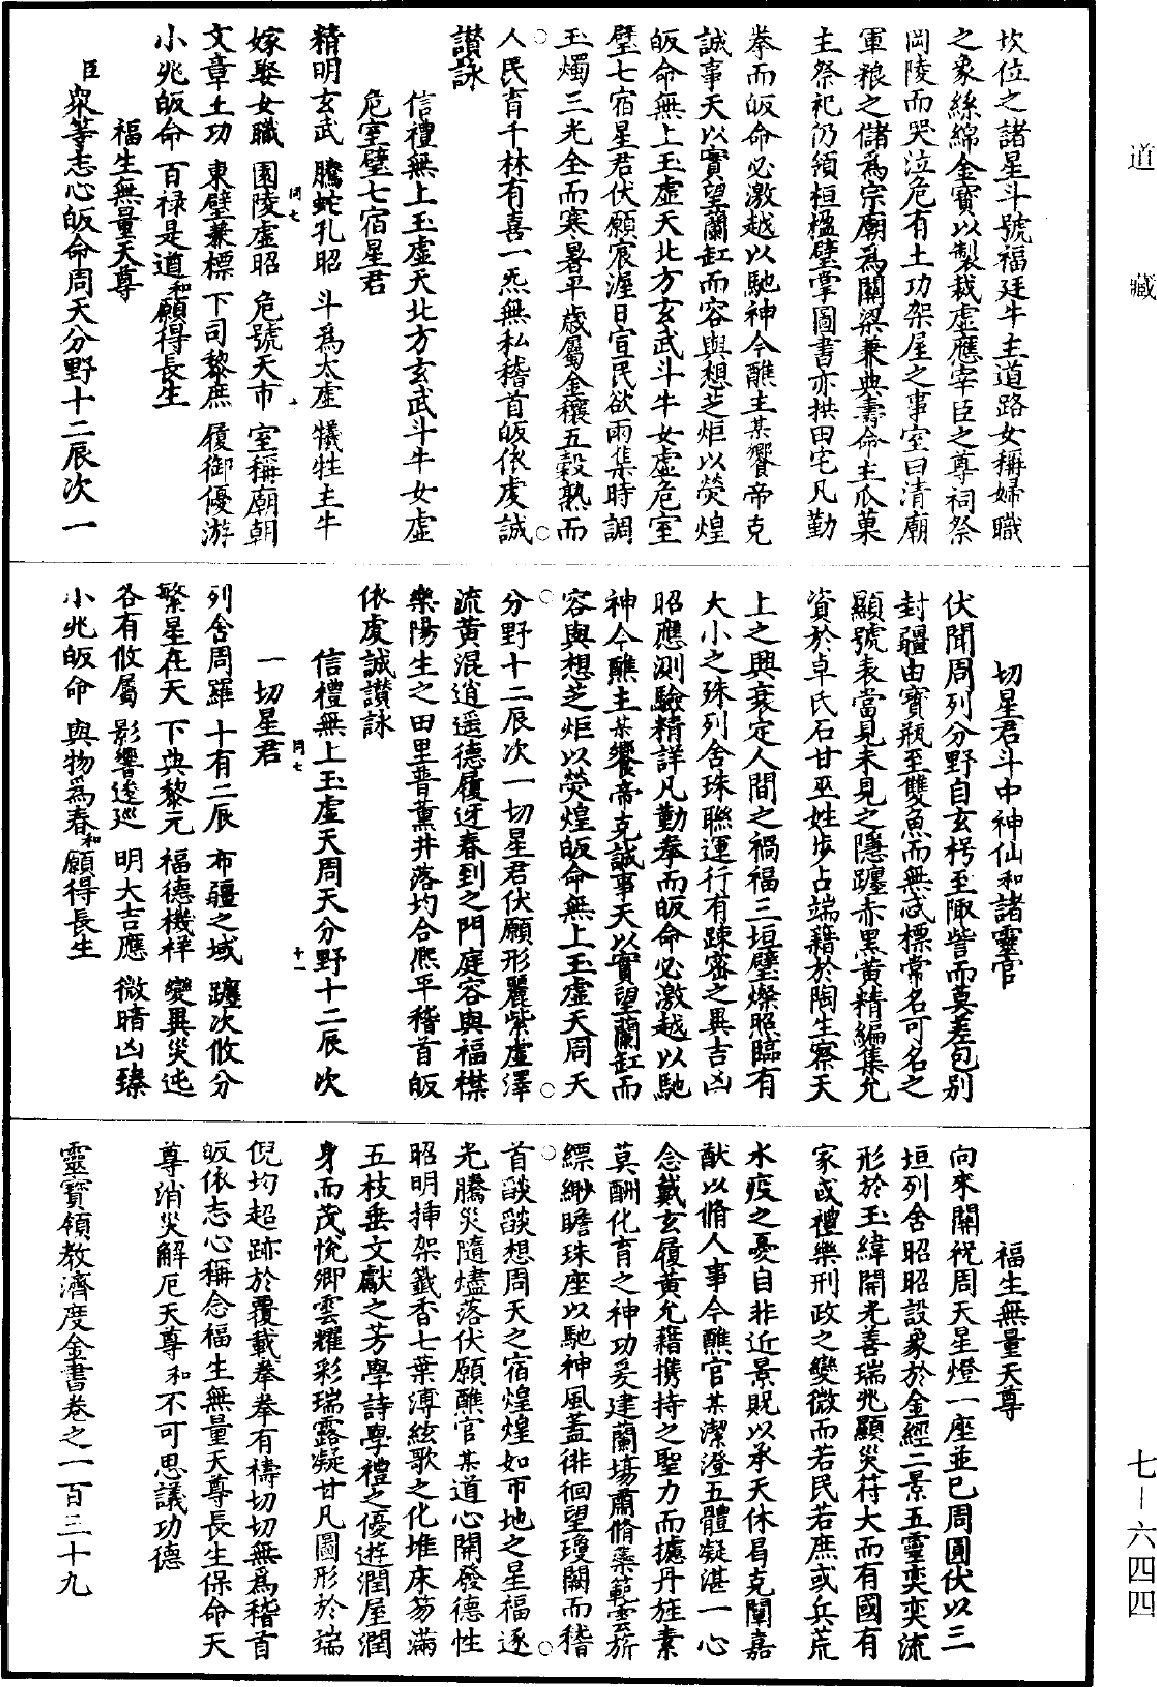 道藏
坎位之諸星斗號福廷牛主道路女稱婦職
之象絲綿金寶以製裁虛應宰臣之尊祠祭
岡陵而哭泣危有土功架屋之事室曰清廟
軍粮之儲爲宗廟爲關梁兼典壽命主瓜菓
主祭祀仍領桓楹壁掌圖書亦拱田宅凡勤
拳而皈命必激越以馳神今醮主某饗帝克
誠事天以實望蘭缸而容與想芝炬以熒煌
皈命無上玉虛天北方玄武斗牛女虛危室
壁七宿星君伏願宸渥日宣民欲雨集時調
玉燭三光全而寒暑平歲屬金穰五穀熟而
人民育千林有喜一炁無私稽首皈依虔誠
讃詠
信禮無上玉虛天北方玄武斗牛女虛
危室壁七宿星君
精明玄武　騰蛇孔昭　斗爲太虛　犧牲主牛
嫁娶女職　園陵虛昭　危號天市　室稱廟朝
文章土功　東壁兼標　下司黎庶　履御優游
小兆皈命　百禄是遒和願得長生
福生無量天尊
臣衆等志心皈命周天分野十二辰次一
切星君斗中神仙和諸靈官
伏聞周列分野自玄枵至陬訾而莫差包別
封疆由寶瓶至雙魚而無忒標常名可名之
顯號表當見未見之隱躔赤黑黄精編集允
資於卓氏石甘巫姓步占端藉於陶生察天
上之興衰定人間之禍福三垣璧燦照臨有
大小之殊列舍珠聯運行有踈密之異吉凶
昭應測驗精詳凡勤拳而皈命必激越以馳
神今醮主某饗帝克誠事天以實望蘭缸而
容與想芝炬以熒煌皈命無上玉虛天周天
分野十二辰次一切星君伏願形麗紫虛澤
流黄混逍遥德履迓春到之門庭容與福襟
樂陽生之田里普薰井落均合熈平稽首皈
依虔誠讃詠
信禮無上玉虛天周天分野十二辰次
一切星君
列舍周羅　十有二辰　布疆之域　躔次攸分
繁星在天　下典黎元　福德機祥　變異災迍
各有攸屬　影響逡巡　明大吉應　微暗凶臻
小兆皈命　與物爲春和願得長生
福生無量天尊
向來關祝周天星燈一座並已周圓伏以三
垣列舍昭昭設象於金經二景五靈奕奕流
形於玉緯開光善瑞兆顯災符大而有國有
家或禮樂刑政之變微而若民若庶或兵荒
水疫之憂自非近景貺以承天休曷克闡嘉
猷以脩人事今醮官某潔澄五體凝湛一心
念戴玄履黄允藉携持之聖力而攄丹旌素
莫酬化育之神功爰建蘭塲肅脩蘂範雲旂
縹緲瞻珠座以馳神風蓋徘徊望瓊闕而稽
首燄燄想周天之宿煌煌如帀地之星福逐
光騰災隨燼落伏願醮官某道心開發德性
昭明挿架籤香七葉溥絃歌之化堆床笏滿
五枝垂文獻之芳學詩學禮之優遊潤屋潤
身而茂恱卿雲耀彩瑞露凝甘凡圖形於端
倪均超跡於覆載拳拳有禱切切無爲稽首
皈依志心稱念福生無量天尊長生保命天
尊消災解厄天尊和不可思議功德
靈寶領教濟度金書卷之一百三十九
七－六四四